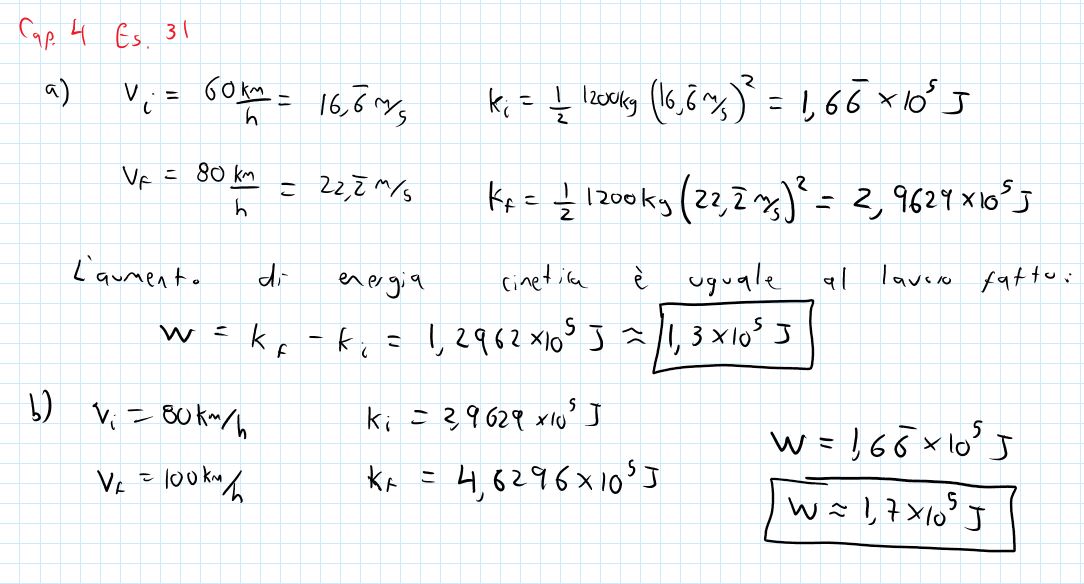 Cap. 4 Es. 31
a) Vi = 60 km/h = 16,6̅ m/s   Ki = 1/2 1200kg (16,6̅ m/s)² = 1,66̅ × 10⁵ J
Vf = 80 km/h = 22,2̅ m/s   Kf = 1/2 1200kg (22,2̅ m/s)² = 2,9629 × 10⁵ J
L'aumento di energia cinetica è uguale al lavoro fatto:
W = Kf - Ki = 1,2962 × 10⁵ J ≈ 1,3 × 10⁵ J
b) Vi = 80 km/h   Ki = 2,9629 × 10⁵ J
Vf = 100 km/h   Kf = 4,6296 × 10⁵ J
W = 1,66̅ × 10⁵ J
W ≈ 1,7 × 10⁵ J